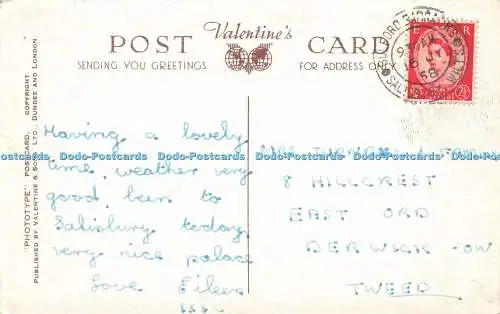 Valentine's
POST CARD
SENDING YOU GREETINGS
FOR ADDRESS ONLY
E R
2½
SALISBURY
WILTS
58
"PHOTOTYPE" POSTCARD. COPYRIGHT.
PUBLISHED BY VALENTINE & SONS, LTD., DUNDEE AND LONDON
Having a lovely
time, weather very
good been to
Salisbury today,
very nice palace
Love Eileen
MRS & FAM
8 HILLCREST
EAST ORD
BERWICK - ON
TWEED
Dodo-Postcards Dodo-Postcards Dodo-Postcards Dodo-Postcards Dodo-Postcards